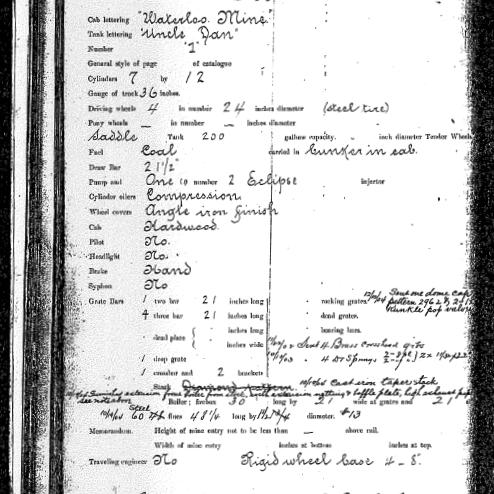 Cab lettering "Waterloo Mine"
Tank lettering "Uncle Dan"
Number "1"
General style of page of catalogue
Cylinders 7 by 12
Gauge of track 36 inches.
Driving wheels 4 in number 24 inches diameter (steel tire)
Pony wheels — in number — inches diameter
Saddle Tank 200 gallons capacity. inch diameter Tender Wheels
Fuel Coal carried in bunker in cab.
Draw Bar 21½"
Pump and One in number 2 Eclipse injector
Cylinder oilers Compression
Wheel covers Angle iron finish
Cab Hardwood
Pilot No.
Headlight No.
Brake Hand
Syphon No
Grate Bars 1 two bar 21 inches long rocking grates.
4 three bar 21 inches long dead grates.
dead plate inches long bearing bars.
inches wide Sent 4 Brass crosshead gibs
1 drop grate 4 Dr Springs
1 crossbar and 2 brackets
Stack Diamond pattern Cast iron taper stack
see note above Boiler; Inches 30 long by 21 wide at grates and 21
Steel 60 flues 48¼ long by diameter. #13
Memorandum. Height of mine entry not to be less than — above rail.
Width of mine entry inches at bottom inches at top.
Traveling engineer No Rigid wheel base 4-8.